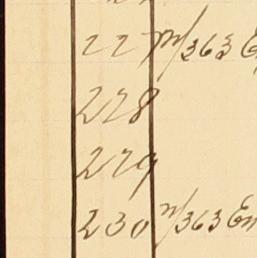 227 n/363 En
228
229
230 n/363 En